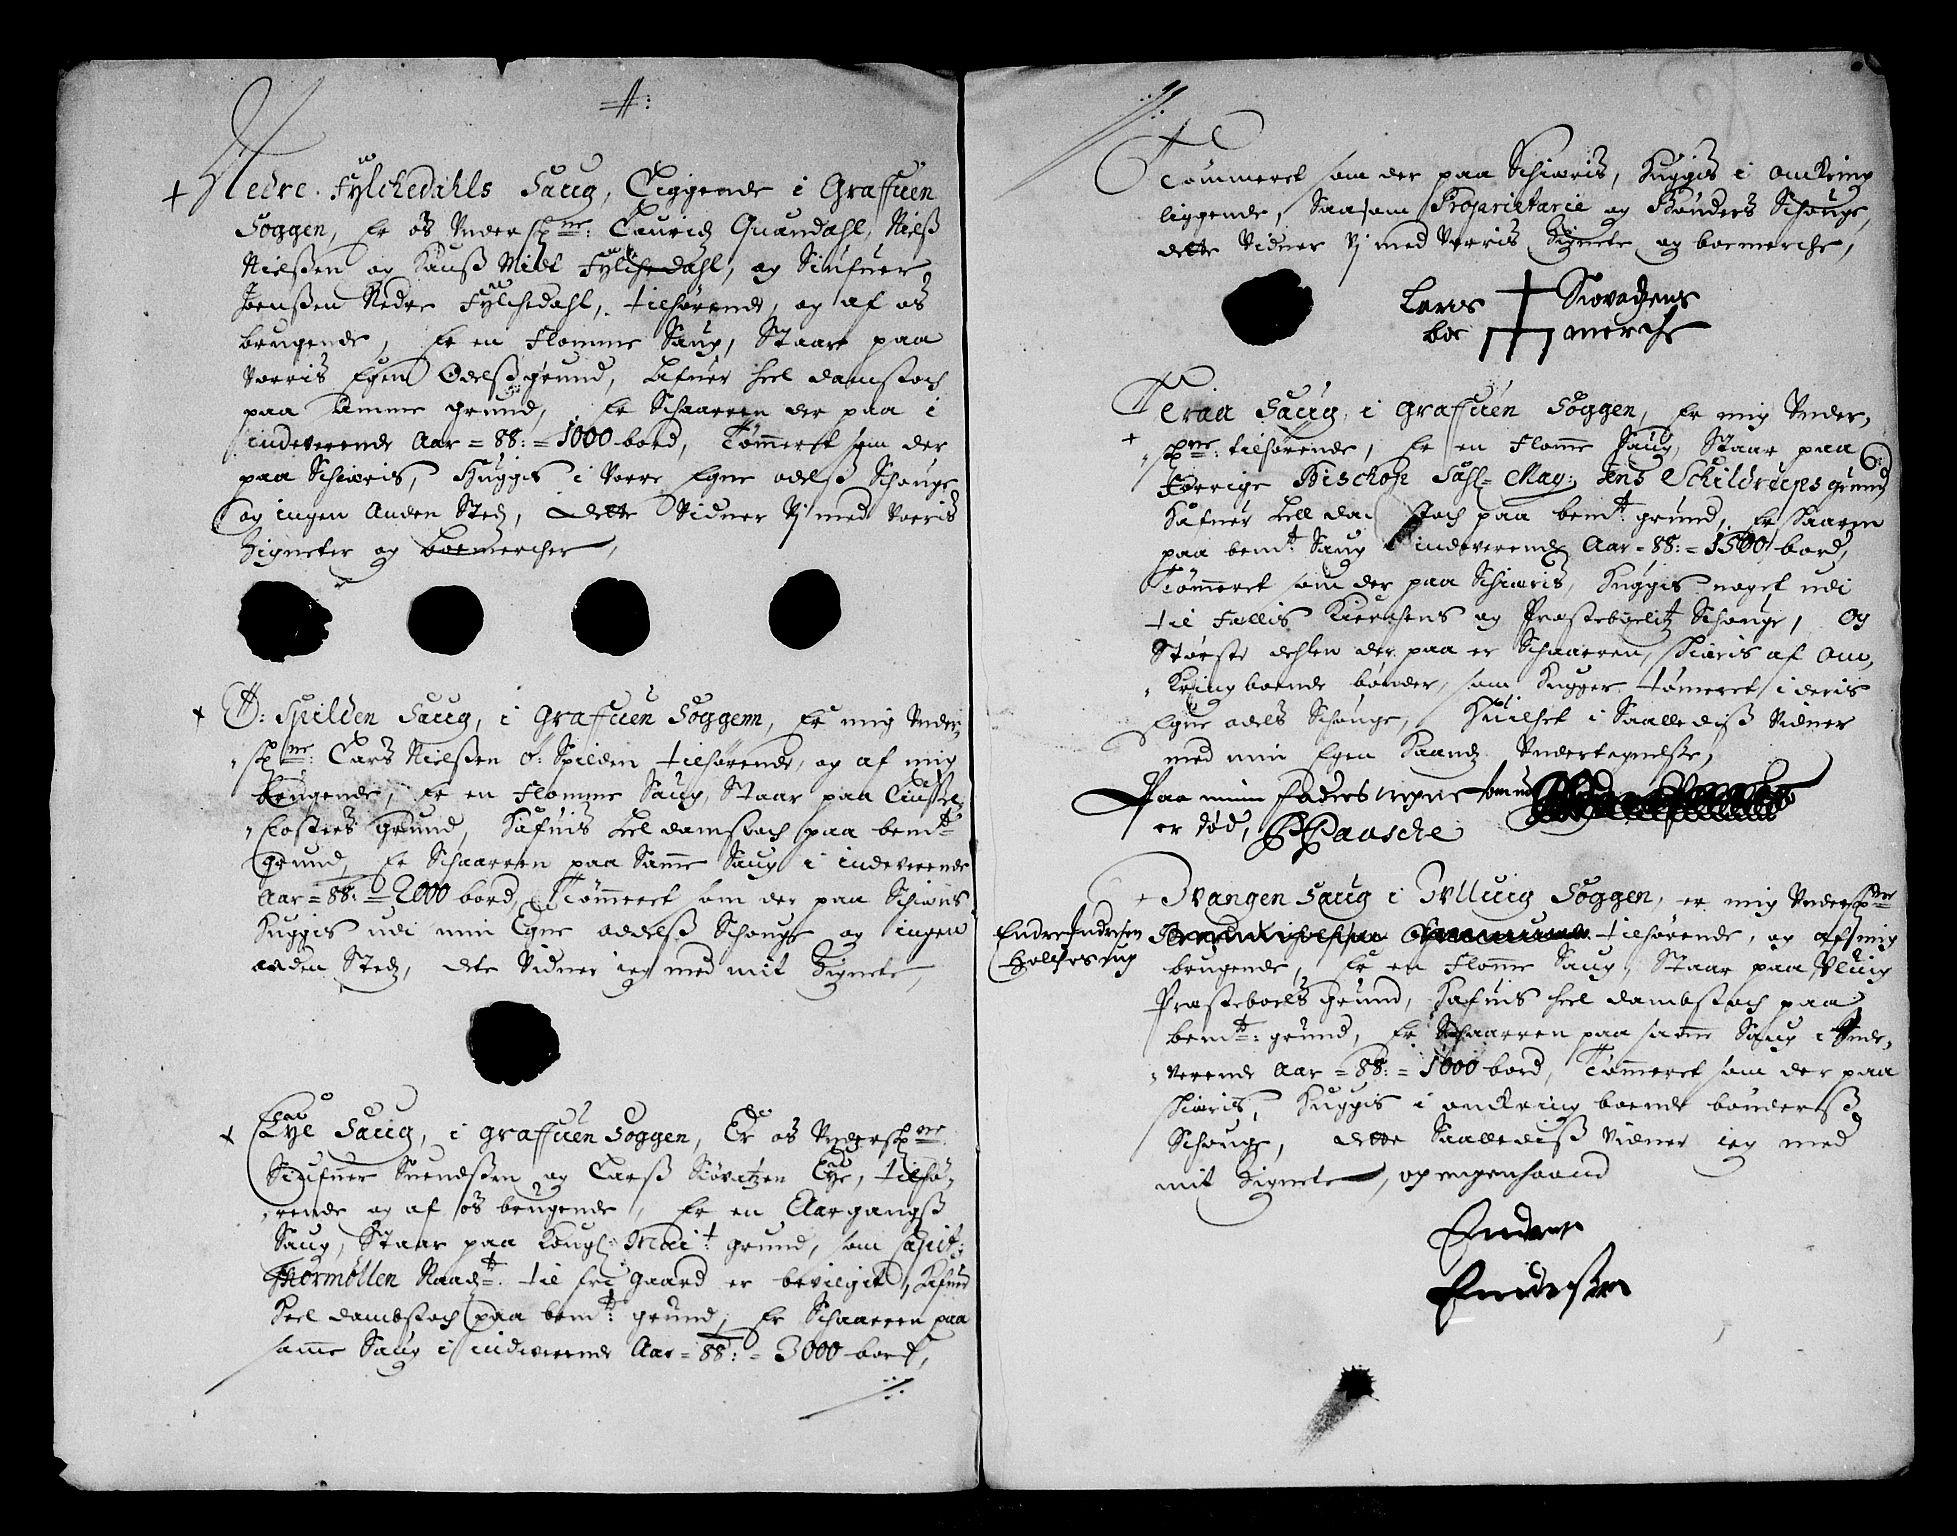 Nedre Fylchedahls Saug, Liggende i Graffuen
Soggen, Er os Underskne: Lauridz Quandahl, Nielß
Nielßen og Hanß Midt Fylchedahl, og Siufuer
Joenßen Nedre Fylchedahl, tilhørende, og af os
brugende, Er en Flomme Saug, Staar paa
Vorris Egen Odelß grund, Hafuer heel damstoch
paa samme grund, Er Schaarren der paa i
indeverende Aar = 88: = 1000 bord, Tømmeret som der
paa Schiæris, Huggis i Vorre Egne odelß Schouge
og ingen Anden Stedz, dette Vidner Vj med Vorris
Zigneter og boemercher,
O: Spilden Saug, i Graffuen Soggenn, Er mig Under
skne: Lars Nielßen O: Spilden tilhørende, og af mig
brugende, Er en Flomme Saug, Staar paa Liusse
Closters Grund, Hafuis heel damstoch paa bemte
Grund, Er Schaarren paa Samme Saug i indeverende
Aar = 88: = 2000 bord, Tømmeret som der paa Schiæris
Huggis udi min Egne oddelß Schouge og ingen
anden Stedz, dete Vidner ieg med mit Zignete,
Eye Saug, i Graffuen Soggen, Er os Underskne
Siufuer Suendßen og Larß Siovatzen Eye, tilhø-
rende og af os brugende, Er en Aargangß
Saug, Staar paa Kongl: Mait: grund, som Capit:
Thormøllen Naadt: til fri gaard er bevilgit, Hafuer
Heel dambstoch paa bemt: grund, Er Schaarren paa
samme Saug i indeverende Aar = 88: = 3000 bord,
Tømmeret som der paa Schiæris, Huggis i omkring
liggende, Saasom Proprietarie og Bønders Schouge,
dette Vidner Vj med Vorris Zignete og boemerche,
Lars Siovadzens
boe merche
Teraa Saug, i Graffuen Soggen, Er mig Under,
skne: tilhørende, Er en Flomme Saug, Staar paa
Forrige Bischop Sahl= May: Jens Schildrups grund
Hafuer heel da stoch paa bemt: grund, Er skaaren
paa bemt: Saug i indeverende Aar = 88: = 1500 bord,
Tømmeret som der paa Schiæris, Huggis noget udi
til Fellis Kierchens og Præsteboelitz Schouge, Og
Største dehlen der paa er Schaarren, skiæris af Om,
Kring boende bønder, som Hugger tømeret i deris
Egne odels Schouge, Huilchet i Saalledis Vidner
med min Egen Haand Undertegnelße,
Paa min Faders vegne som nu
er død, Paasche
Ovangen Saug i Ulluig Soggen, er mig Underskne
Endre Endresen
Hollfsrug
tilhørende, og af mig
brugende, Er en Flomme Saug, Staar paa Ulluig
Præsteboels grund, Hafuis heel dambstoch paa
bemt: grund, Er Schaarren paa samme Saug i Inde,
verende Aar = 88: = 1000 bord, Tømmeret som der paa
skiæris, Huggis i omkring boende bønderß
Schouge, dette Saalledis Vidner ieg med
mit Zignete, og engen haand
Endre
Endreßen